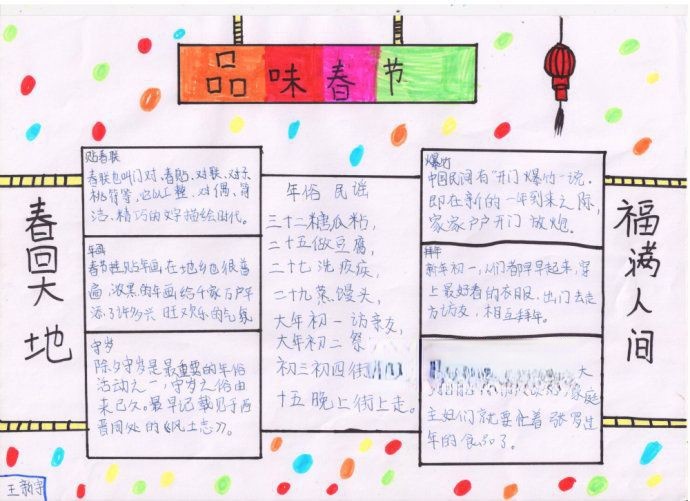 品味春节
春回大地
贴春联
春联也叫门对、春贴、对联、对子
桃符等，它以工整、对偶、简
洁、精巧的文字描绘时代。
年画
春节挂贴年画在地乡也很普
遍，浓黑的年画给千家万户平
添了许多兴旺欢乐的气氛
守岁
除夕守岁是最重要的年俗
活动之一，守岁之俗由
来已久。最早记载见于西
晋周处的《风土志》。
年俗 民谣
二十二糖瓜粘，
二十五做豆腐，
二十七洗疚疾，
二十九蒸馒头，
大年初一访亲友，
大年初二祭
初三初四街
十五晚上街上走。
爆竹
中国民间有“开门爆竹一说，
即在新的一年到来之际，
家家户户开门放炮。
拜年
新年初一，人们都早早起来，穿
上最好看的衣服，出门去走
方访友，相互拜年。
大
家庭
主妇们就要忙着张罗过
年的食品了。
福满人间